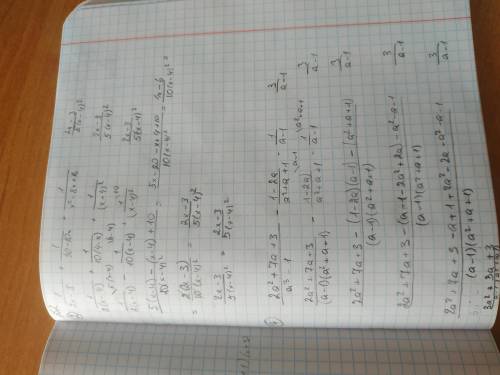 1/(2(x-4)) + 1/(10(4-x)) + 1/(x-4)² 2x-3/5(x-4)²
1/(2(x-4)) - 1/(10(x-4)) + 1/(x-4)² 2x-3/5(x-4)²
5(x-4)-(x-4)+10/10(x-4)² = 5x-20-x+4+10/10(x-4)² = 4x-6/10(x-4)² =
= 2(2x-3)/10(x-4)² = 2x-3/5(x-4)²
2x-3/5(x-4)² = 2x-3/5(x-4)²
2a²+7a+3/a³-1 - 1-2a/a²+a+1 - 1/a-1 3/a-1
2a²+7a+3/(a-1)(a²+a+1) - 1-2a/a²+a+1 - 1/a-1 3/a-1
2a²+7a+3-(1-2a)(a-1)-(a²+a+1)/(a-1)(a²+a+1) 3/a-1
2a²+7a+3-(a-1-2a²+2a)-a²-a-1/(a-1)(a²+a+1) 3/a-1
2a²+7a+3-a+1+2a²-2a-a²-a-1/(a-1)(a²+a+1) 3/a-1
3a²+3a+3